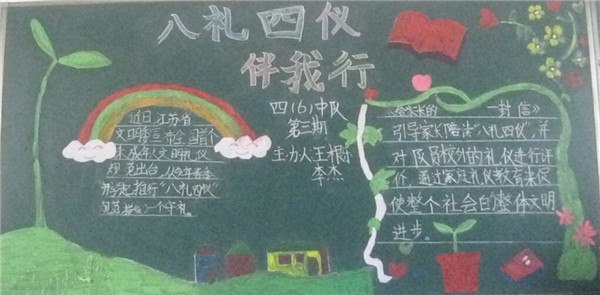 八礼四仪
伴我行
四(6)中队
第三期
主办人王根乐
李杰
近日江苏省
文明委宣布全国首个
未成年人文明礼仪
规范出台,从今年春季
形式推行“八礼四仪”
规范
《给家长的一封信》
引导家长陪读“八礼四仪”,并
对队员校外的礼仪进行评
价,通过家庭礼仪教育来促
使整个社会的整体文明
进步。